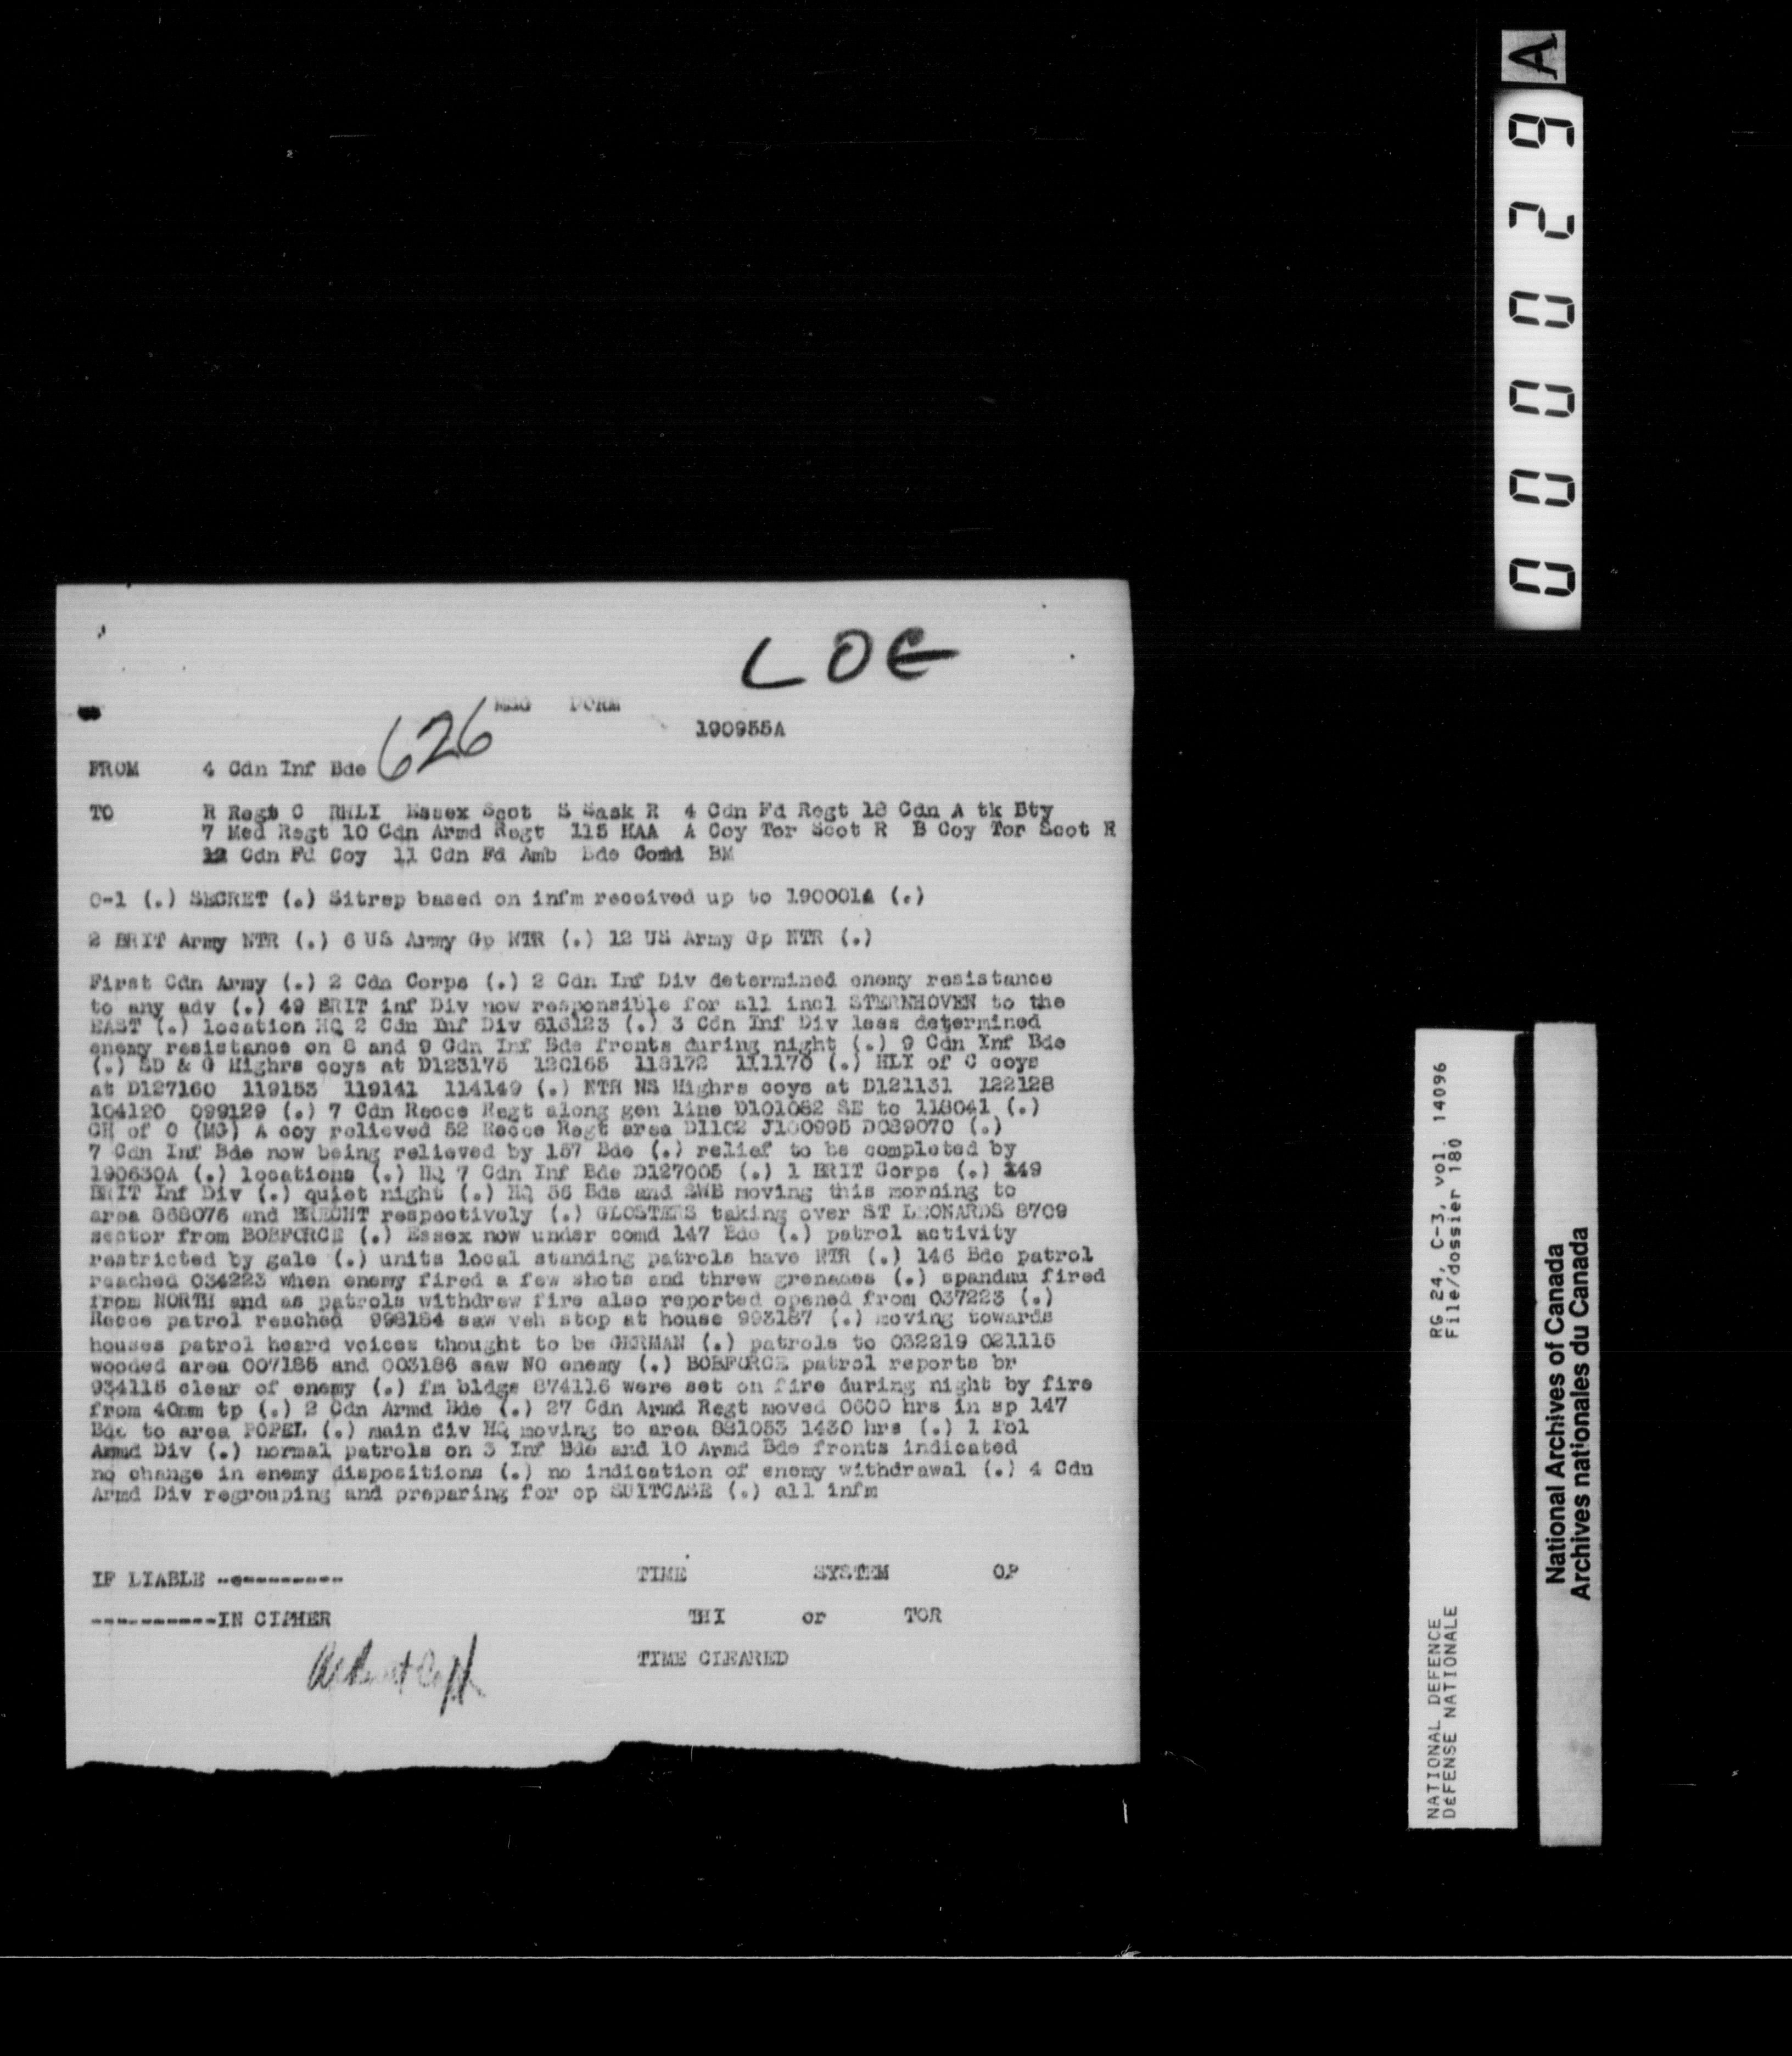 LOG
MSG FORM
626
190955A
FROM 4 Cdn Inf Bde
TO R Regt C RHLI Essex Scot S Sask R 4 Cdn Fd Regt 18 Cdn A tk Bty
7 Med Regt 10 Cdn Armd Regt 115 HAA A Coy Tor Scot R B Coy Tor Scot R
12 Cdn Fd Coy 11 Cdn Fd Amb Bde Comd BM
O-1 (.) SECRET (.) Sitrep based on infm received up to 190001A (.)
2 BRIT Army NTR (.) 6 US Army Gp NTR (.) 12 US Army Gp NTR (.)
First Cdn Army (.) 2 Cdn Corps (.) 2 Cdn Inf Div determined enemy resistance
to any adv (.) 49 BRIT inf Div now responsible for all incl STERNHOVEN to the
EAST (.) location HQ 2 Cdn Inf Div 616123 (.) 3 Cdn Inf Div less determined
enemy resistance on 8 and 9 Cdn Inf Bde fronts during night (.) 9 Cdn Inf Bde
(.) SD & G Highrs coys at D123175 120165 118172 111170 (.) HLI of C coys
at D127160 119153 119141 114149 (.) NTR NS Highrs coys at D121131 122128
104120 099129 (.) 7 Cdn Recce Regt along gen line D101082 SE to 118041 (.)
CH of O (MG) A coy relieved 52 Recce Regt area D1102 J100995 D089070 (.)
7 Cdn Inf Bde now being relieved by 157 Bde (.) relief to be completed by
190630A (.) locations (.) HQ 7 Cdn Inf Bde D127005 (.) 1 BRIT Corps (.) 49
BRIT Inf Div (.) quiet night (.) HQ 56 Bde and SWB moving this morning to
area 868076 and BRECHT respectively (.) GLOSTERS taking over ST LEONARDS 8709
sector from BOBFORCE (.) Essex now under comd 147 Bde (.) patrol activity
restricted by gale (.) units local standing patrols have NTR (.) 146 Bde patrol
reached 034223 when enemy fired a few shots and threw grenades (.) spandau fired
from NORTH and as patrols withdrew fire also reported opened from 037223 (.)
Recce patrol reached 998184 saw veh stop at house 993187 (.) moving towards
houses patrol heard voices thought to be GERMAN (.) patrols to 032219 021115
wooded area 007185 and 003186 saw NO enemy (.) BOBFORCE patrol reports br
934115 clear of enemy (.) fm bldgs 874116 were set on fire during night by fire
from 40mm tp (.) 2 Cdn Armd Bde (.) 27 Cdn Armd Regt moved 0600 hrs in sp 147
Bde to area POPEL (.) main div HQ moving to area 881053 1430 hrs (.) 1 Pol
Armd Div (.) normal patrols on 3 Inf Bde and 10 Armd Bde fronts indicated
no change in enemy dispositions (.) no indication of enemy withdrawal (.) 4 Cdn
Armd Div regrouping and preparing for op SUITCASE (.) all infm
IF LIABLE ----------- TIME SYSTEM OP
-----------IN CIPHER THI or TOR
TIME CLEARED
000029 A
RG 24, C-3, vol. 14096
File/dossier 180
NATIONAL DEFENCE
DÉFENSE NATIONALE
National Archives of Canada
Archives nationales du Canada